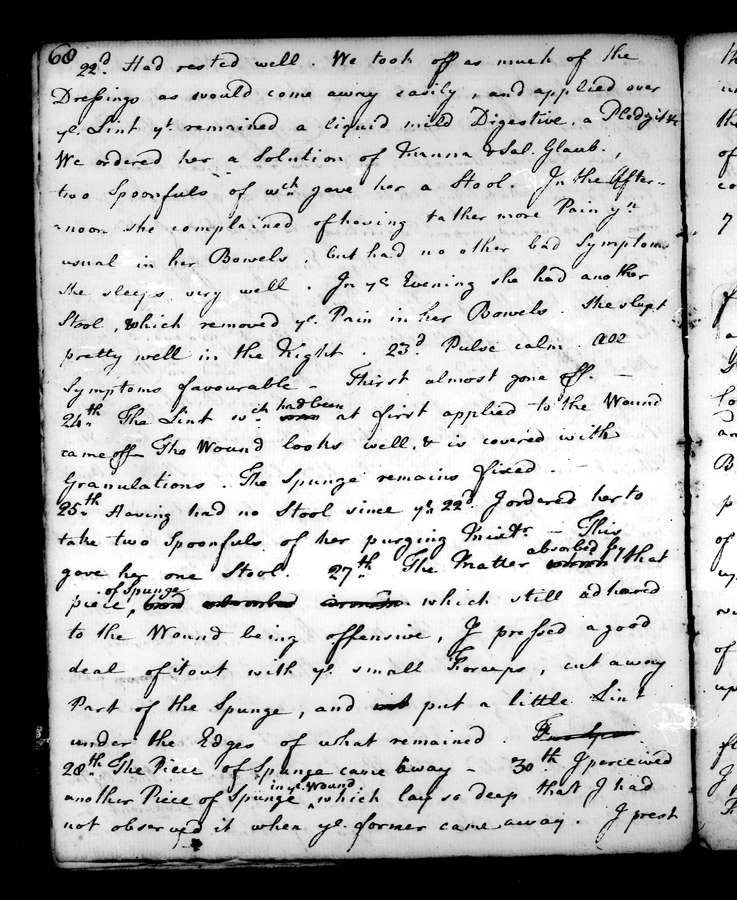 60
22d. Had rested well. We took off as much of the
Dressings as would come away easily, and applied over
ye. Lint yt. remained a liquid mild Digestive, a Pledgit &c
We ordered her a Solution of Manna & Sal. Glaub.,
two Spoonfuls of wch. gave her a Stool. In the After-
-noon she complained of having rather more Pain yn.
usual in her Bowels, but had no other bad Symptoms
She sleeps very well. In ye Evening she had another
Stool, which removed ye. Pain in her Bowels. She slept
pretty well in the Night. 23d. Pulse calm. All
Symptoms favourable - Thirst almost gone off. -
24th. The Lint wch had been at first applied to the Wound
came off - The Wound looks well, & is covered with
Granulations. The Spunge remains fixed. -
25th. Having had no Stool since ye. 22d. I ordered her to
take two Spoonfuls of her purging Mixtr. - This
gave her one Stool. 27th. The Matter absorbed by that
piece, of Spunge which still adhered
to the Wound being offensive, I pressed a good
deal of it out with ye. small Forceps, cut away
Part of the Spunge, and put a little Lint
under the Edges of what remained.
28th. The Piece of Spunge came away - 30th I perceived
another Piece of Spunge in ye. Wound, which lay so deep that I had
not observed it when ye. former came away. I prest